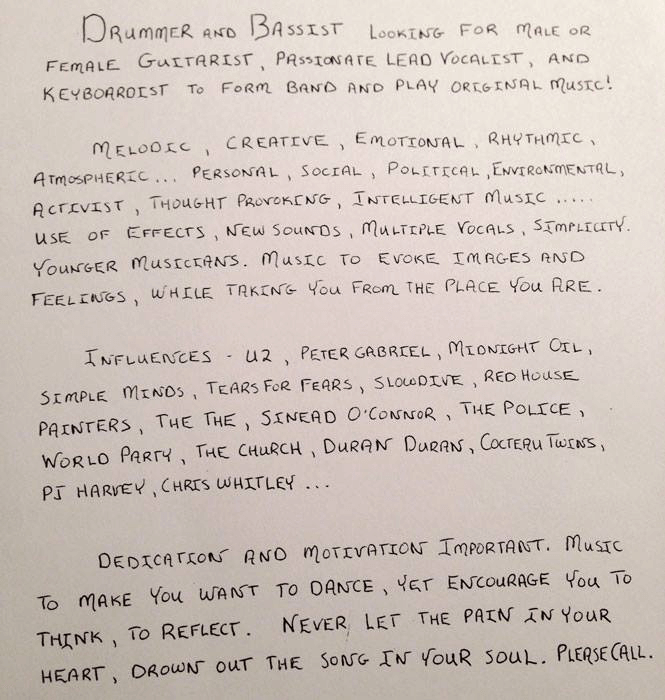 DRUMMER AND BASSIST LOOKING FOR MALE OR
FEMALE GUITARIST, PASSIONATE LEAD VOCALIST, AND
KEYBOARDIST TO FORM BAND AND PLAY ORIGINAL MUSIC!
MELODIC, CREATIVE, EMOTIONAL, RHYTHMIC,
ATMOSPHERIC... PERSONAL, SOCIAL, POLITICAL, ENVIRONMENTAL,
ACTIVIST, THOUGHT PROVOKING, INTELLIGENT MUSIC .....
USE OF EFFECTS, NEW SOUNDS, MULTIPLE VOCALS, SIMPLICITY.
YOUNGER MUSICIANS. MUSIC TO EVOKE IMAGES AND
FEELINGS, WHILE TAKING YOU FROM THE PLACE YOU ARE.
INFLUENCES - U2, PETER GABRIEL, MIDNIGHT OIL,
SIMPLE MINDS, TEARS FOR FEARS, SLOWDIVE, RED HOUSE
PAINTERS, THE THE, SINEAD O'CONNOR, THE POLICE,
WORLD PARTY, THE CHURCH, DURAN DURAN, COCTEAU TWINS,
PJ HARVEY, CHRIS WHITLEY ...
DEDICATION AND MOTIVATION IMPORTANT. MUSIC
TO MAKE YOU WANT TO DANCE, YET ENCOURAGE YOU TO
THINK, TO REFLECT. NEVER LET THE PAIN IN YOUR
HEART, DROWN OUT THE SONG IN YOUR SOUL. PLEASE CALL.